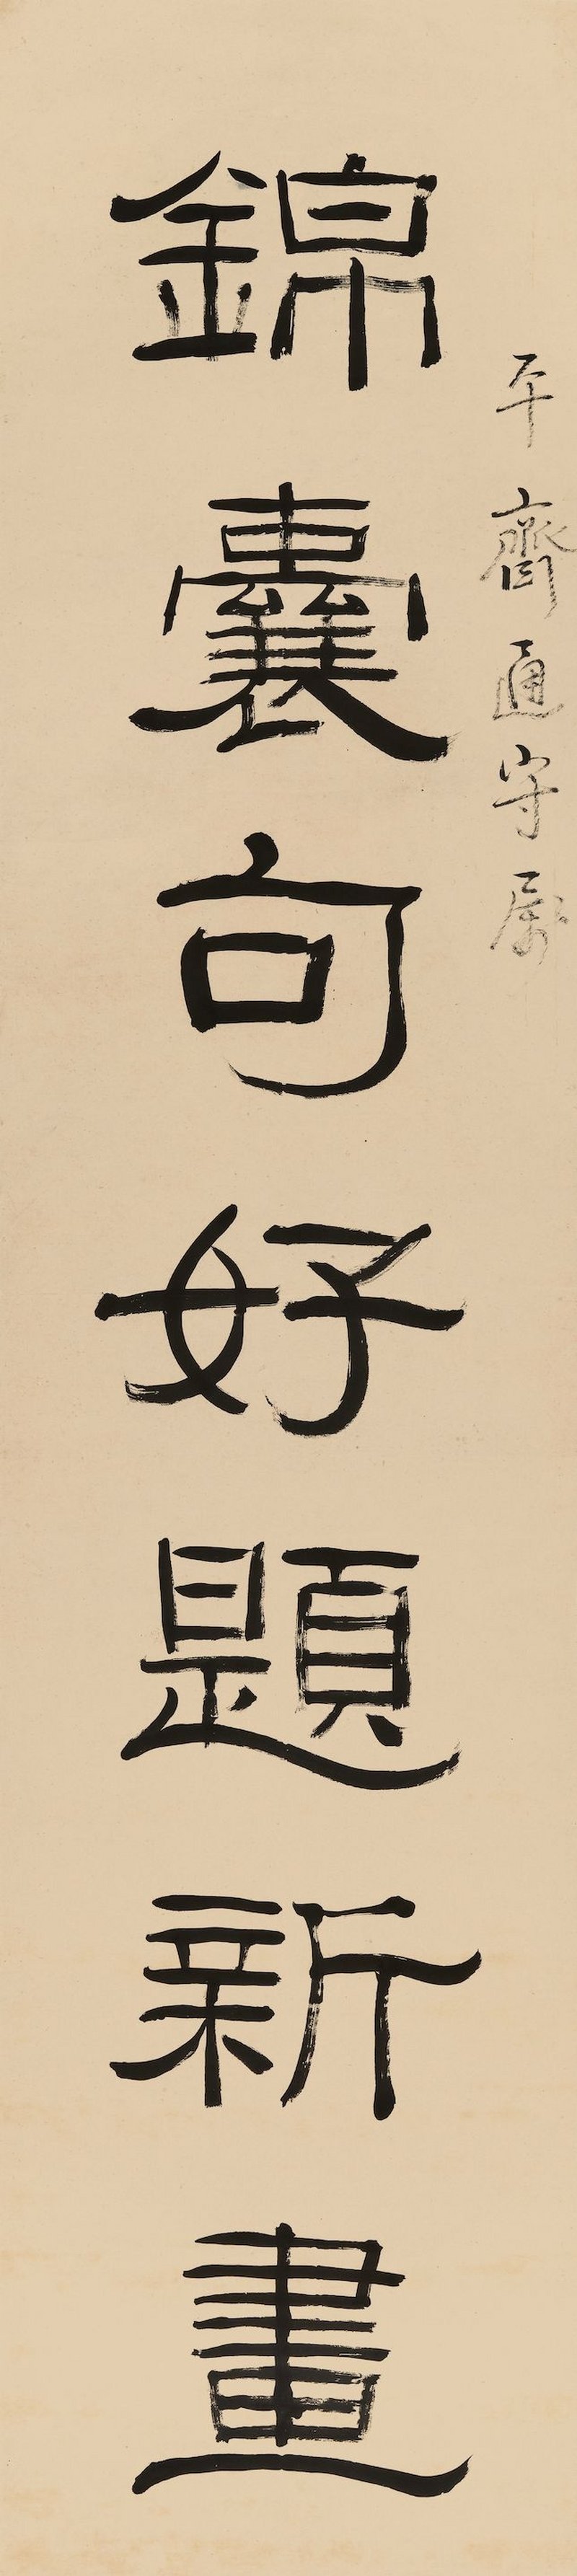 平齋通守屬
錦囊句好題新畫